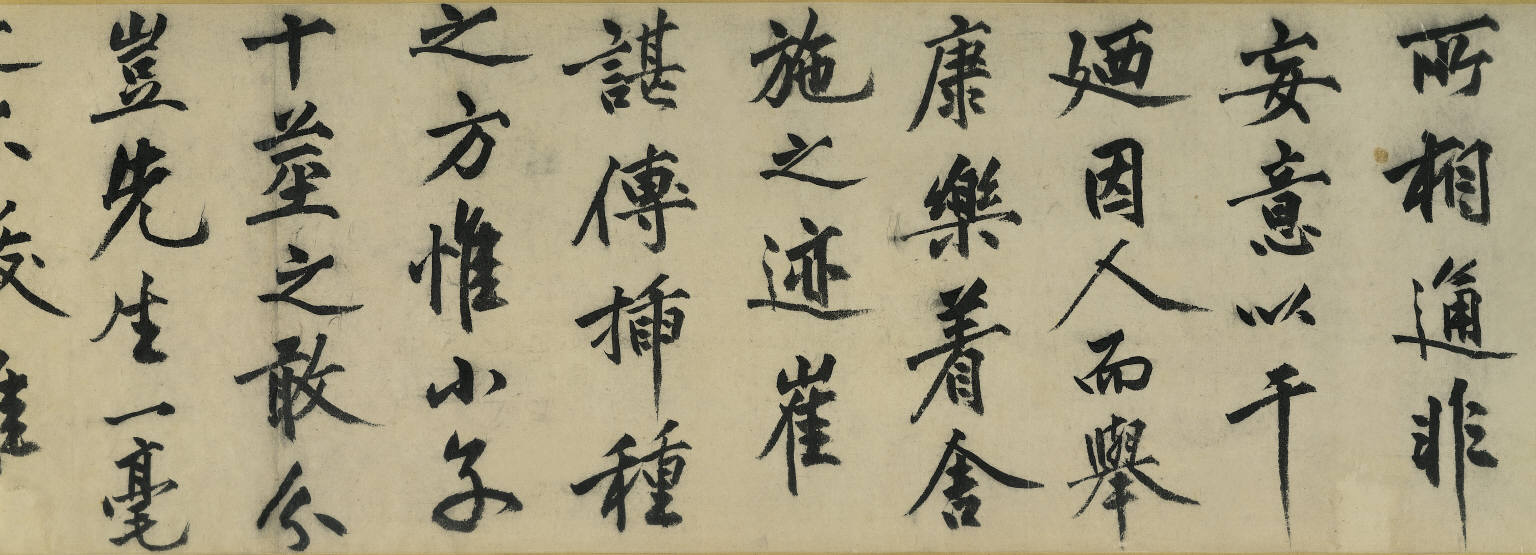 所相通非
妄意以干
廼因人而舉
康樂着舍
施之迹崔
諶傳揷種
之方惟小子
十莖之敢分
豈先生一毫